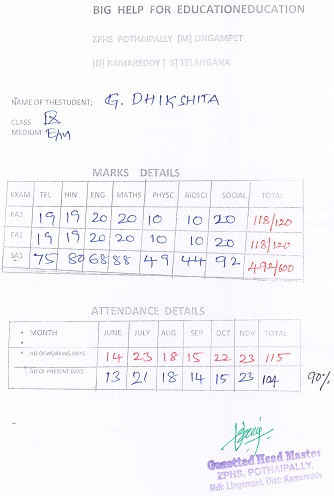 BIG HELP FOR EDUCATIONEDUCATION
ZPHS POTHAIPALLY [M] LINGAMPET
[D] KAMAREDDY [ S] TELANGANA
NAME OF THESTUDENT; G. DHIKSHITA
CLASS IX
MEDIUM E/M
MARKS DETAILS
EXAM TEL HIN ENG MATHS PHYSC BIOSCI SOCIAL TOTAL
FA1 19 19 20 20 10 10 20 118/120
FA2 19 19 20 20 10 10 20 118/120
SA1 75 80 68 88 49 44 92 492/600
ATTENDANCE DETAILS
MONTH JUNE JULY AUG SEP OCT NOV TOTAL
NO OF WORKING DAYS 14 23 18 15 22 23 115
NO OF PRESENT DAYS 13 21 18 14 15 23 104 90%
Gazetted Head Master
ZPHS. POTHAIPALLY,
Mdl: Lingampet, Dist: Kamareddy